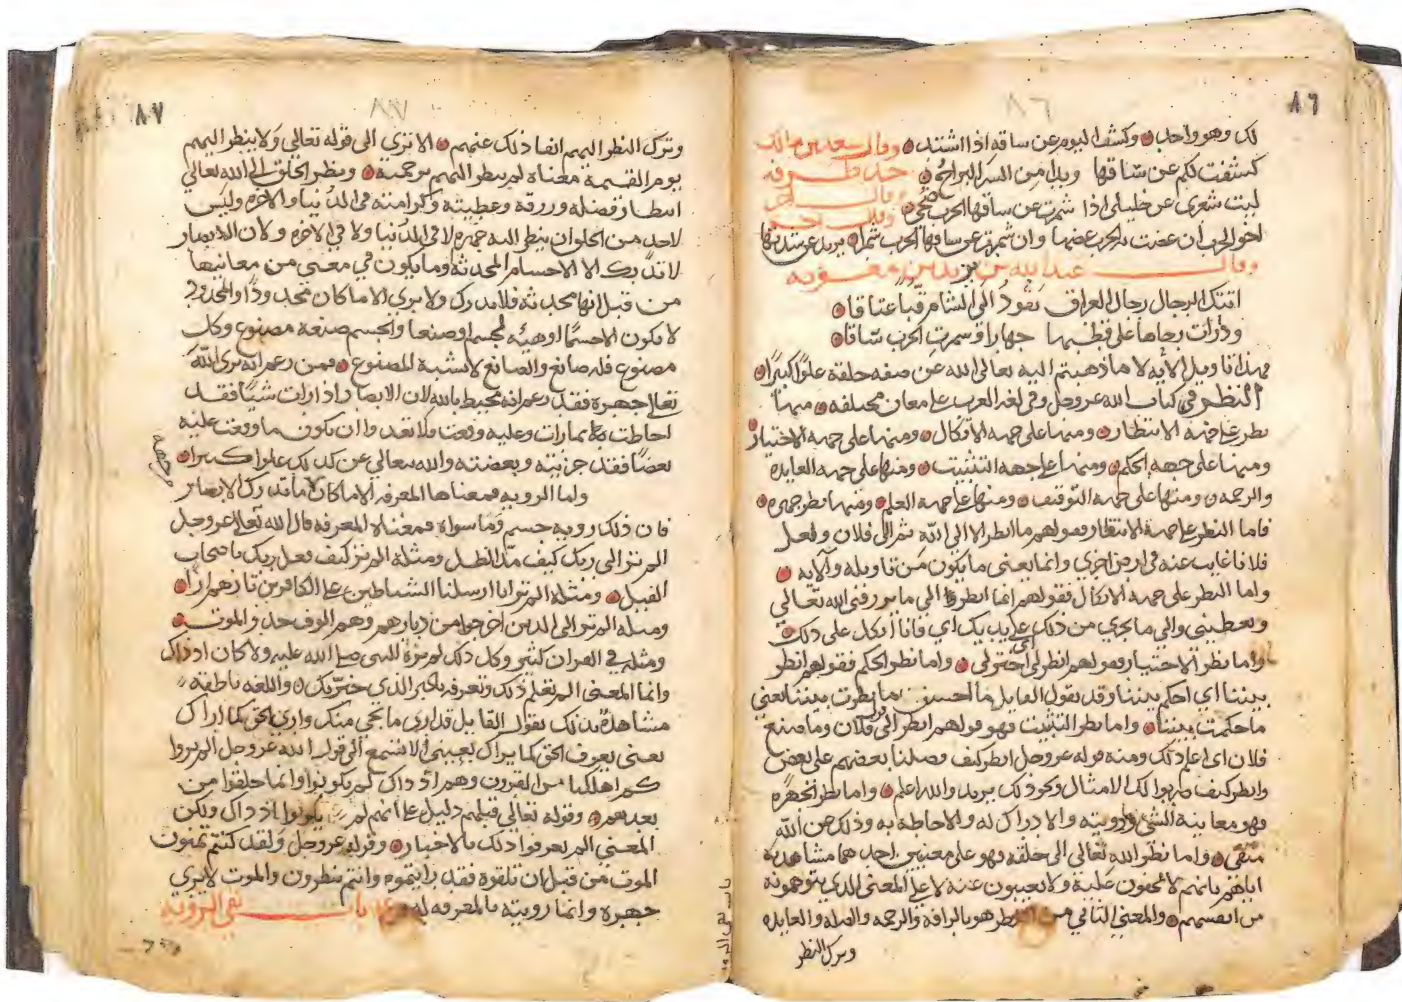 ٨٦
٨٦
لك وهو واحد وكشف اليوم عن ساقه اذا اشتد وقال سعد بن مالك
كشفت لكم عن ساقها وبدا من الشر البراح جد طرفه
ليت شعري عن خليلي اذا شمرت عن ساقها الحرب وقال اخر
اخو الحرب ان عضت به الحرب عضها وان شمرت عن ساقها الحرب شمرا يريد عن شدتها
وقال عبد الله بن يزيد بن معويه
اتتك الرجال رجال العراق تقود الى الشام قبا عتاقا
ودارت رحاها على قطبها جهارا وشمرت الحرب ساقا
فهذا تاويل الآيه لا ما ذهبتم اليه تعالى الله عن صفه خلقه علوا كبيرا
النظر في كتاب الله عز وجل وفي لغه العرب على معان مختلفه منها
نظر على جهه الانتظار ومنها على جهه الاتكال ومنها على جهه الاختيار
ومنها على جهه الحكم ومنها على جهه التثبيت ومنها على جهه العايده
والرحمه ومنها على جهه التوقيف ومنها على جهه العلم ومنها نظر جهره
فاما النظر على جهه الانتظار فقولهم ما انظر الا الى الله ثم الى فلان ولعل
فلانا غايب عنه في ارض اخرى وانما يعني ما يكون من تاويله وآلايه
واما النظر على جهه الاتكال فقولهم انما انظر الى ما يرزقني الله تعالى
ويعطيني والى ما يجري من ذلك على يديك اي فانا اتكل على ذلك
واما نظر الاختيار فقولهم انظر لي اي اختر لي واما نظر الحكم فقولهم انظر
بيننا اي احكم بيننا وقد يقول القايل ما احسن ما نظرت بيننا يعني
ما حكمت بيننا واما نظر التثبيت فهو قولهم انظر الى فلان وما صنع
فلان اي اعلم ذلك ومنه قوله عز وجل انظر كيف فضلنا بعضهم على بعض
وانظر كيف ضربوا لك الامثال ونحو ذلك يريد والله اعلم واما نظر الجهره
فهو معاينة الشي ورويته والادراك له والاحاطه به وذلك عن الله
منفي واما نظر الله تعالى الى خلقه فهو على معنيين احدهما مشاهدته
اياهم بانهم لا يخفون عليه ولا يغيبون عنه لا على المعنى الذي يتوهمونه
من انفسهم والمعنى الثاني من النظر هو بالرافه والرحمه والصله والعايده
وترك النظر
٨٧
٨٧
وترك النظر اليهم انفاذ ذلك عنهم الا ترى الى قوله تعالى ولا ينظر اليهم
يوم القيمة معناه لم ينظر اليهم برحمته ونظر الخلق الى الله تعالى
انتظار فضله ورزقه وعطيته وكرامته في الدنيا والاخره وليس
لاحد من الخلق ان ينظر اليه جهره لا في الدنيا ولا في الاخره ولان الابصار
لا تدرك الا الاجسام المحدثه وما يكون في معنى من معانيها
من قبل انها محدثه فلا تدرك ولا يرى الا ما كان محدودا والمحدود
لا يكون الا جسما او هيئه لجسم او صنعا والجسم صنعة مصنوع وكل
مصنوع فله صانع والصانع لا يشبه المصنوع فمن زعم انه يرى الله
تعالى جهرة فقد زعم انه محيط بالله لان الابصار اذا رات شيا فقد
احاطت بما رات وعليه وقعت فلا تعدوا ان يكون ما وقعت عليه
بعضا فقد جزيته وبعضته والله تعالى عن كل ذلك علوا كبيرا
واما الرويه فمعناها المعرفه الا ما كان مما تدرك الابصار
فان ذلك رويه جسم وما سواه فمعناه المعرفه قال الله تعالى عز وجل
الم تر الى ربك كيف مد الظل ومثله الم تر كيف فعل ربك باصحاب
الفيل ومثله الم تر انا ارسلنا الشياطين على الكافرين تازهم ازا
ومثله الم تر الى الذين اخرجوا من ديارهم وهم الوف حذر الموت
ومثله في القران كثير وكل ذلك لم يره النبي صلى الله عليه ولا كان اذ ذاك
وانما المعنى الم تعلم ذلك وتعرفه بالخبر الذي خبرتك واللغه ناطقه
مشاهدة بذلك يقول القايل قد ارى ما يجي منك وارى الحق كما اراك
يعني يعرف الحق كما يراك بعينه الا تسمع الى قول الله عز وجل الم يروا
كم اهلكنا من القرون وهم اذ ذاك لم يكونوا وانما خلقوا من
بعدهم وقوله تعالى قبلهم دليل على انهم لم يكونوا اذ ذاك ولكن
المعنى الم يعرفوا ذلك بالاخبار وقوله عز وجل ولقد كنتم تمنون
الموت من قبل ان تلقوه فقد رايتموه وانتم تنظرون والموت لا يرى
جهره وانما رويته بالمعرفه له باب نفي الرويه
باب نفي الرويه